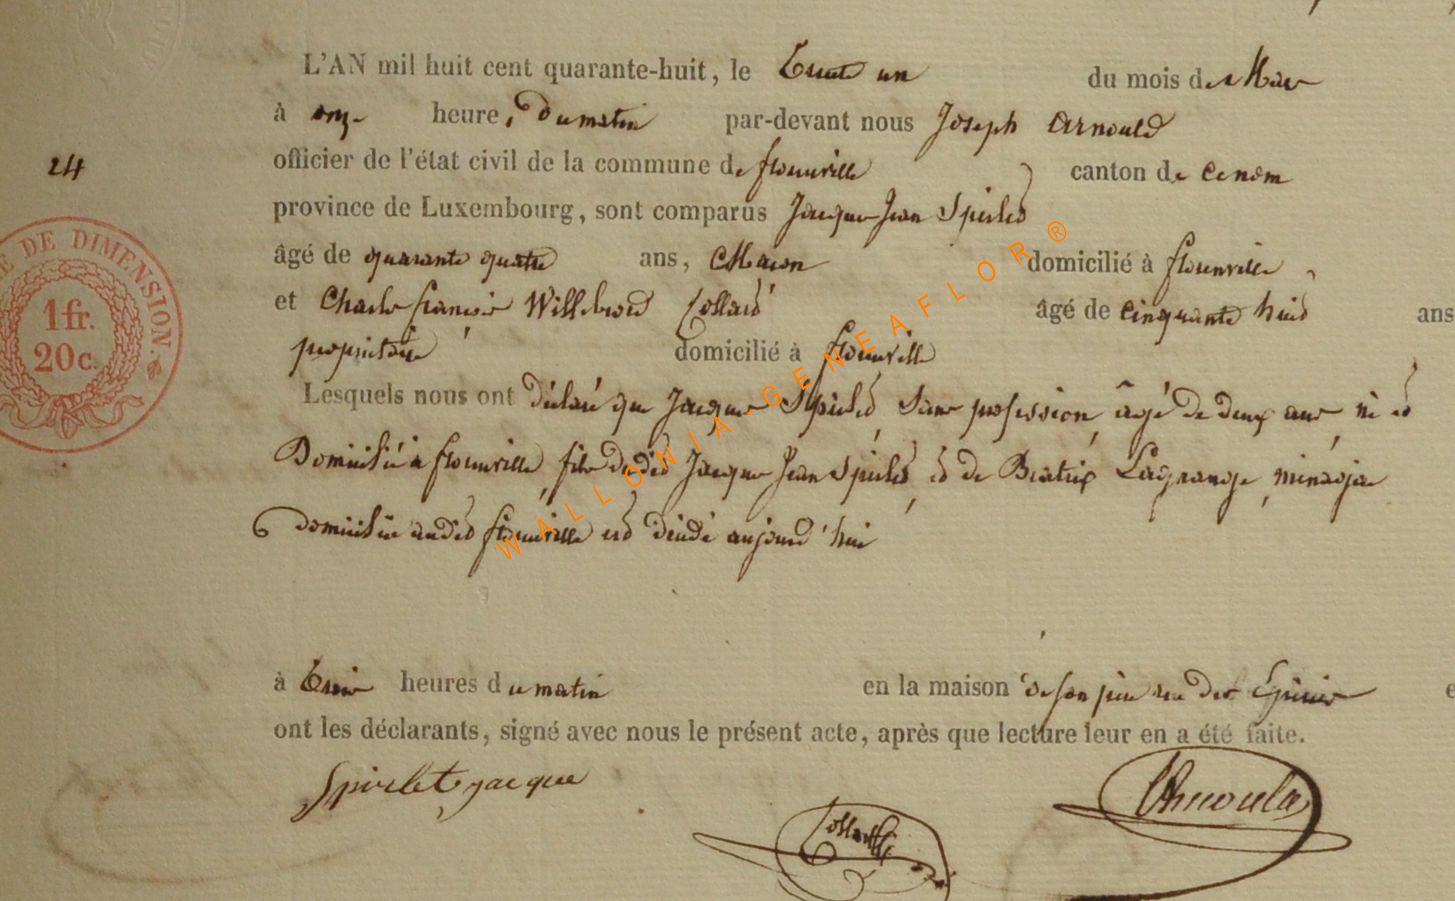 L'AN mil huit cent quarante-huit, le Trente un du mois de Mai
à onze heures du matin par-devant nous Joseph Arnould
24
officier de l'état civil de la commune de florenville canton de idem
province de Luxembourg, sont comparus Jacque Jean Spirlet
âgé de quarante quatre ans, Macon domicilié à florenville
et Charle françois Willebrord Collard âgé de cinquante huit ans
propriétaire domicilié à florenville
Lesquels nous ont déclaré que Jacque Spirlet, Sans profession, âgé de deux ans, né et
Domicilié à florenville, fils dudit Jacque Jean Spirlet, et de Beatrix Lagrange, ménagère
domiciliée audit florenville est décédé aujourd'hui
à heures du matin en la maison de son père rue des
ont les déclarants, signé avec nous le présent acte, après que lecture leur en a été faite.
Spirlet jacque
Collard
Arnould
DE DIMENSION.
1fr.
20c.
WALLONIA-GENEAFLOR®